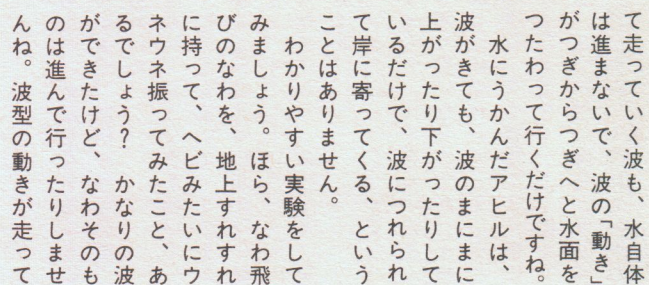 て走っていく波も、水自体
は進まないで、波の「動き」
がつぎからつぎへと水面を
つたわって行くだけですね。
　水にうかんだアヒルは、
波がきても、波のまにまに
上がったり下がったりして
いるだけで、波につれられ
て岸に寄ってくる、という
ことはありません。
　わかりやすい実験をして
みましょう。ほら、なわ飛
びのなわを、地上すれすれ
に持って、ヘビみたいにウ
ネウネ振ってみたこと、あ
るでしょう？　かなりの波
ができたけど、なわそのも
のは進んで行ったりしませ
んね。波型の動きが走って